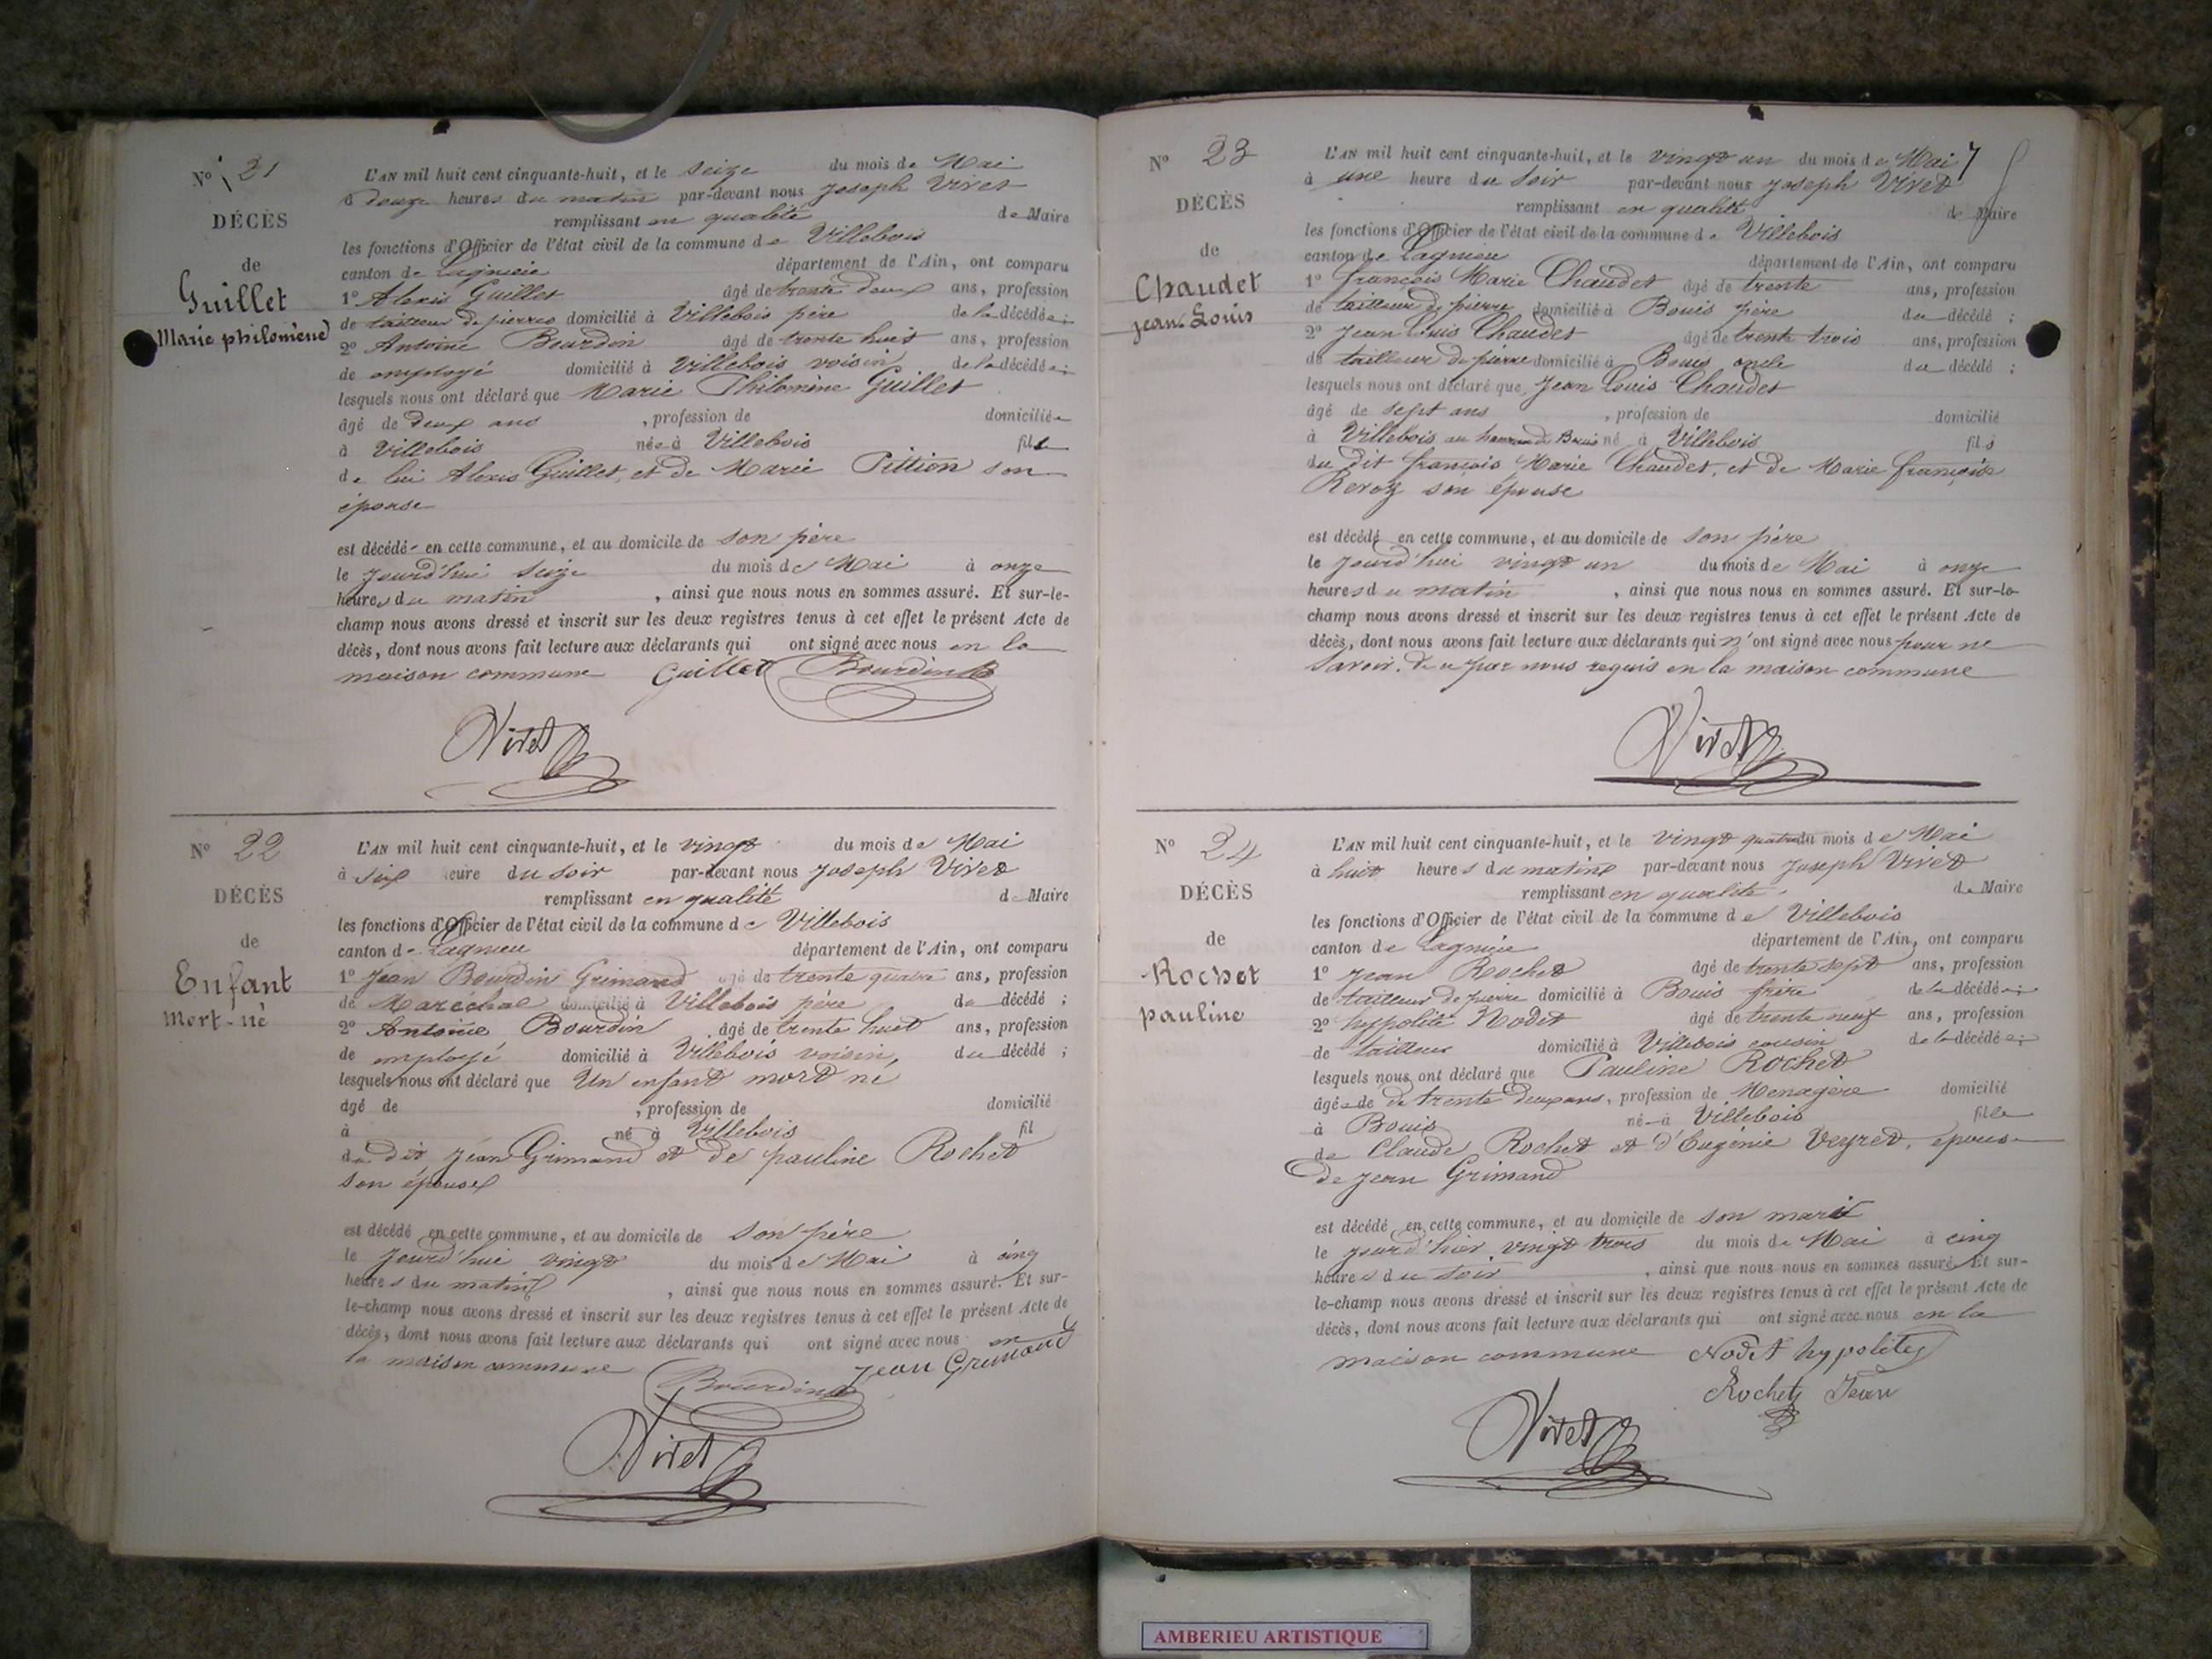 N° 21
DÉCÈS
de
Guillet
Marie philomène
L'AN mil huit cent cinquante-huit, et le seize du mois de Mai
à douze heures du matin par-devant nous Joseph Vivet
remplissant en qualité de Maire
les fonctions d'Officier de l'état civil de la commune de Villebois
canton de Lagnieu département de l'Ain, ont comparu
1° Alexis Guillet âgé de trente deux ans, profession
de tailleur de pierres domicilié à Villebois père de la décédée;
2° Antoine Bourdin âgé de trente huit ans, profession
de employé domicilié à Villebois voisin de la décédée;
lesquels nous ont déclaré que Marie Philomène Guillet
âgé de deux ans , profession de domiciliée
à Villebois née à Villebois fille
de lui Alexis Guillet, et de Marie Pittion son
épouse
est décédée en cette commune, et au domicile de son père
le jourd'hui seize du mois de Mai à onze
heures du matin , ainsi que nous nous en sommes assuré. Et sur-le-
champ nous avons dressé et inscrit sur les deux registres tenus à cet effet le présent Acte de
décès, dont nous avons fait lecture aux déclarants qui ont signé avec nous en la
maison commune Guillet Bourdin
Vivet
N° 22
DÉCÈS
de
Enfant
Mort-né
L'AN mil huit cent cinquante-huit, et le vingt du mois de Mai
à six heure du soir par-devant nous Joseph Vivet
remplissant en qualité de Maire
les fonctions d'Officier de l'état civil de la commune de Villebois
canton de Lagnieu département de l'Ain, ont comparu
1° Jean Bourdin Grimand âgé de trente quatre ans, profession
de Maréchal domicilié à Villebois père du décédé ;
2° Antoine Bourdin âgé de trente huit ans, profession
de employé domicilié à Villebois voisin, du décédé ;
lesquels nous ont déclaré que Un enfant mort né
âgé de , profession de domicilié
à né à Villebois fil
du dit Jean Grimand et de pauline Rochet
son épouse
est décédé en cette commune, et au domicile de son père
le jourd'hui vingt du mois de Mai à cinq
heures du matin , ainsi que nous nous en sommes assuré. Et sur-
le-champ nous avons dressé et inscrit sur les deux registres tenus à cet effet le présent Acte de
décès, dont nous avons fait lecture aux déclarants qui ont signé avec nous en
la maison commune Bourdin Jean Grimand
Vivet
N° 23
DÉCÈS
de
Chaudet
jean-Louis
L'AN mil huit cent cinquante-huit, et le vingt un du mois de Mai 7
à une heure du soir par-devant nous Joseph Vivet
remplissant en qualité de Maire
les fonctions d'Officier de l'état civil de la commune de Villebois
canton de Lagnieu département de l'Ain, ont comparu
1° françois Marie Chaudet âgé de trente ans, profession
de tailleur de pierre domicilié à Bouis père du décédé ;
2° Jean Louis Chaudet âgé de trente trois ans, profession
de tailleur de pierre domicilié à Bouis oncle du décédé ;
lesquels nous ont déclaré que Jean Louis Chaudet
âgé de sept ans , profession de domicilié
à Villebois au hameau de Bouis né à Villebois fils
du dit françois Marie Chaudet, et de Marie françoise
son épouse
est décédé en cette commune, et au domicile de son père
le jourd'hui vingt un du mois de Mai à onze
heures du matin , ainsi que nous nous en sommes assuré. Et sur-le-
champ nous avons dressé et inscrit sur les deux registres tenus à cet effet le présent Acte de
décès, dont nous avons fait lecture aux déclarants qui n'ont signé avec nous pour ne
savoir. de ce par nous requis en la maison commune
Vivet
N° 24
DÉCÈS
de
Rochet
pauline
L'AN mil huit cent cinquante-huit, et le vingt quatre du mois de Mai
à huit heures du matin par-devant nous Joseph Vivet
remplissant en qualité de Maire
les fonctions d'Officier de l'état civil de la commune de Villebois
canton de Lagnieu département de l'Ain, ont comparu
1° Jean Rochet âgé de trente sept ans, profession
de tailleur de pierre domicilié à Bouis frère de la décédée;
2° hyppolite Nodet âgé de trente neuf ans, profession
de tailleur domicilié à Villebois cousin de la décédée;
lesquels nous ont déclaré que Pauline Rochet
âgée de de trente deux ans, profession de Menagère domicilié
à Bouis née à Villebois fille
de Claude Rochet et d'Eugénie Veyret, épouse
de Jean Grimand
est décédé en cette commune, et au domicile de son mari
le jourd'hier vingt trois du mois de Mai à cinq
heures du soir , ainsi que nous nous en sommes assuré. Et sur-
le-champ nous avons dressé et inscrit sur les deux registres tenus à cet effet le présent Acte de
décès, dont nous avons fait lecture aux déclarants qui ont signé avec nous en la
maison commune Nodet hypolite
Rochet Jean
Vivet
AMBERIEU ARTISTIQUE